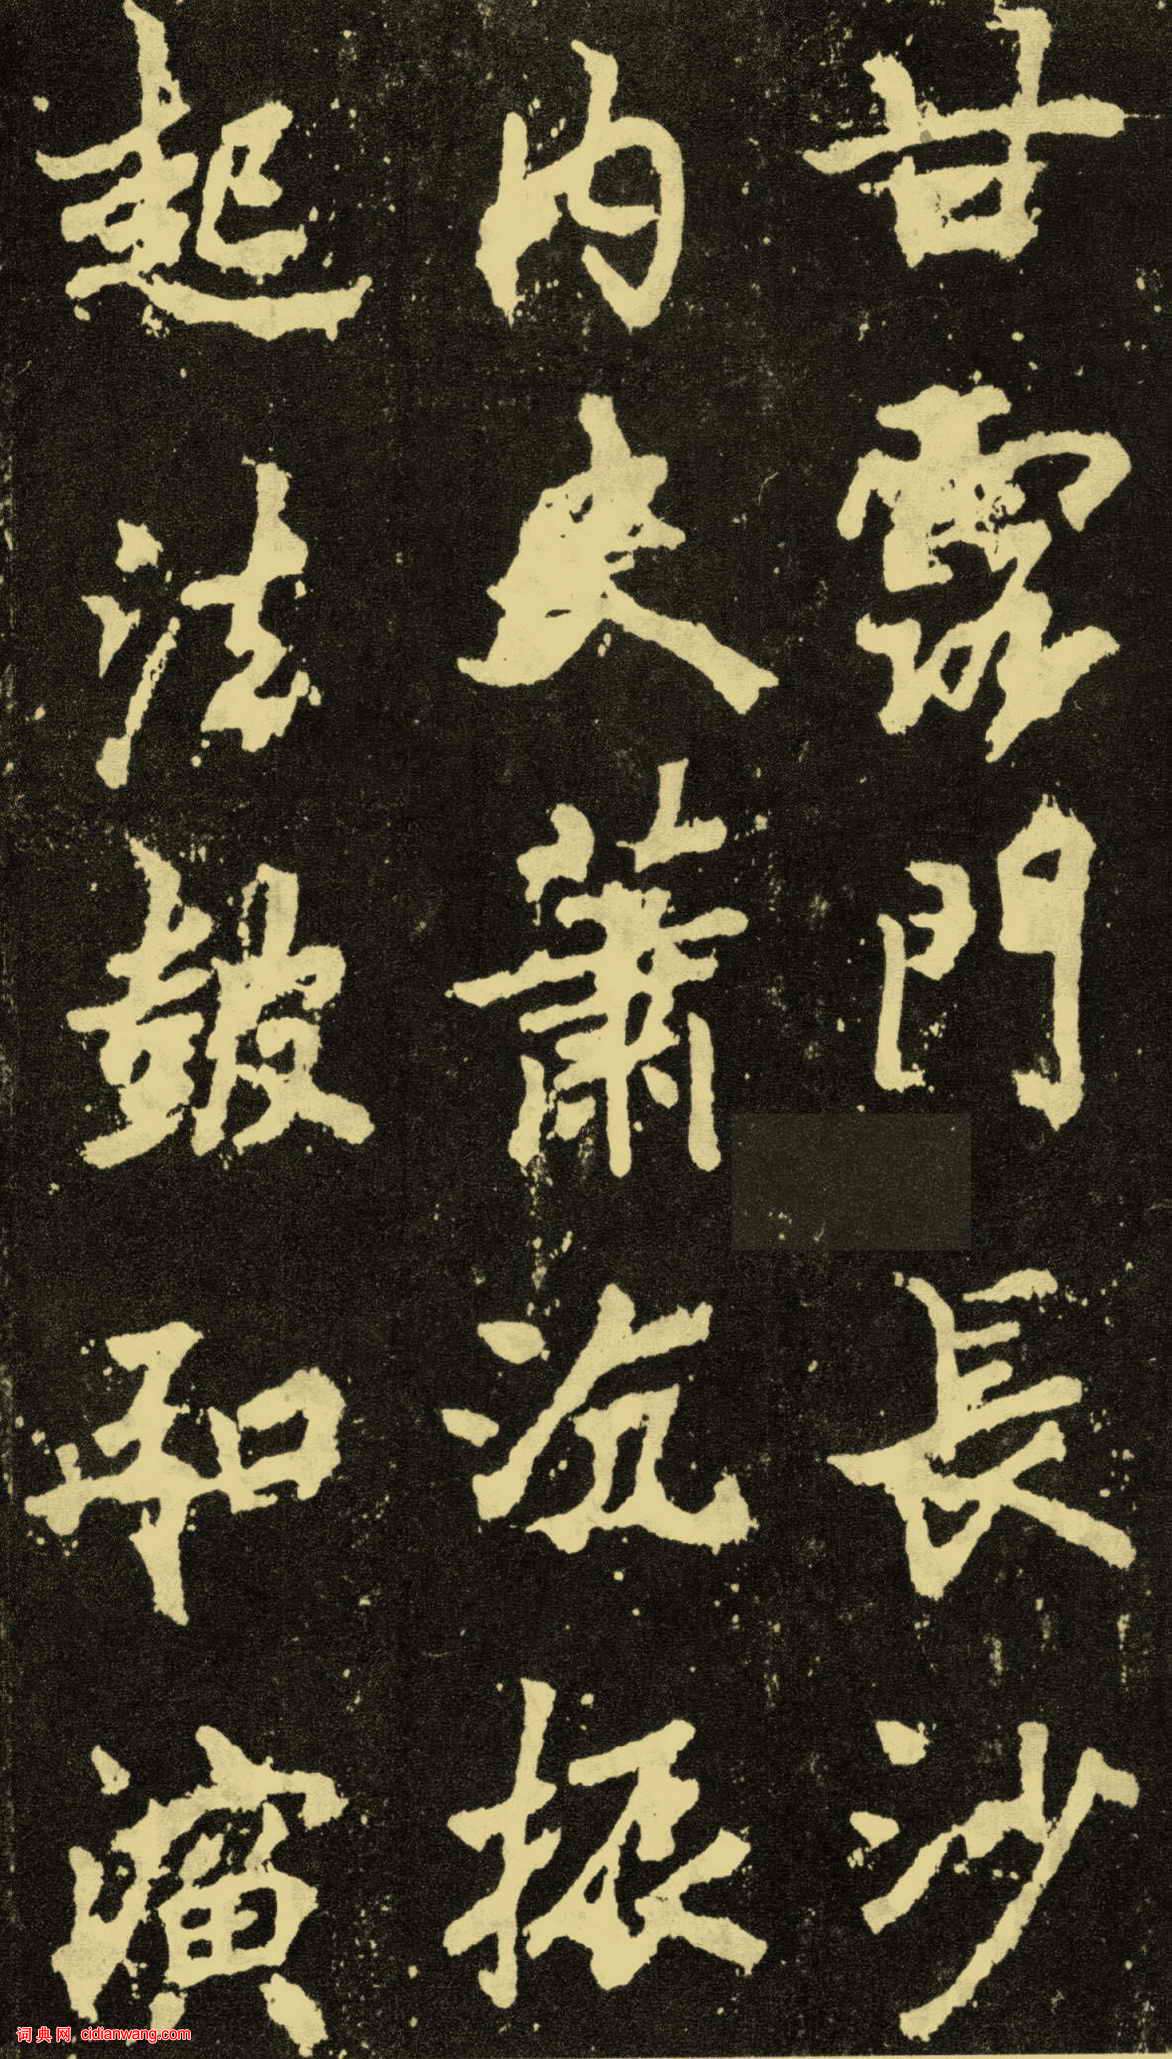 甘露門長沙
內史蕭沉振
起法鼓知演
词典网 cidianwang.com